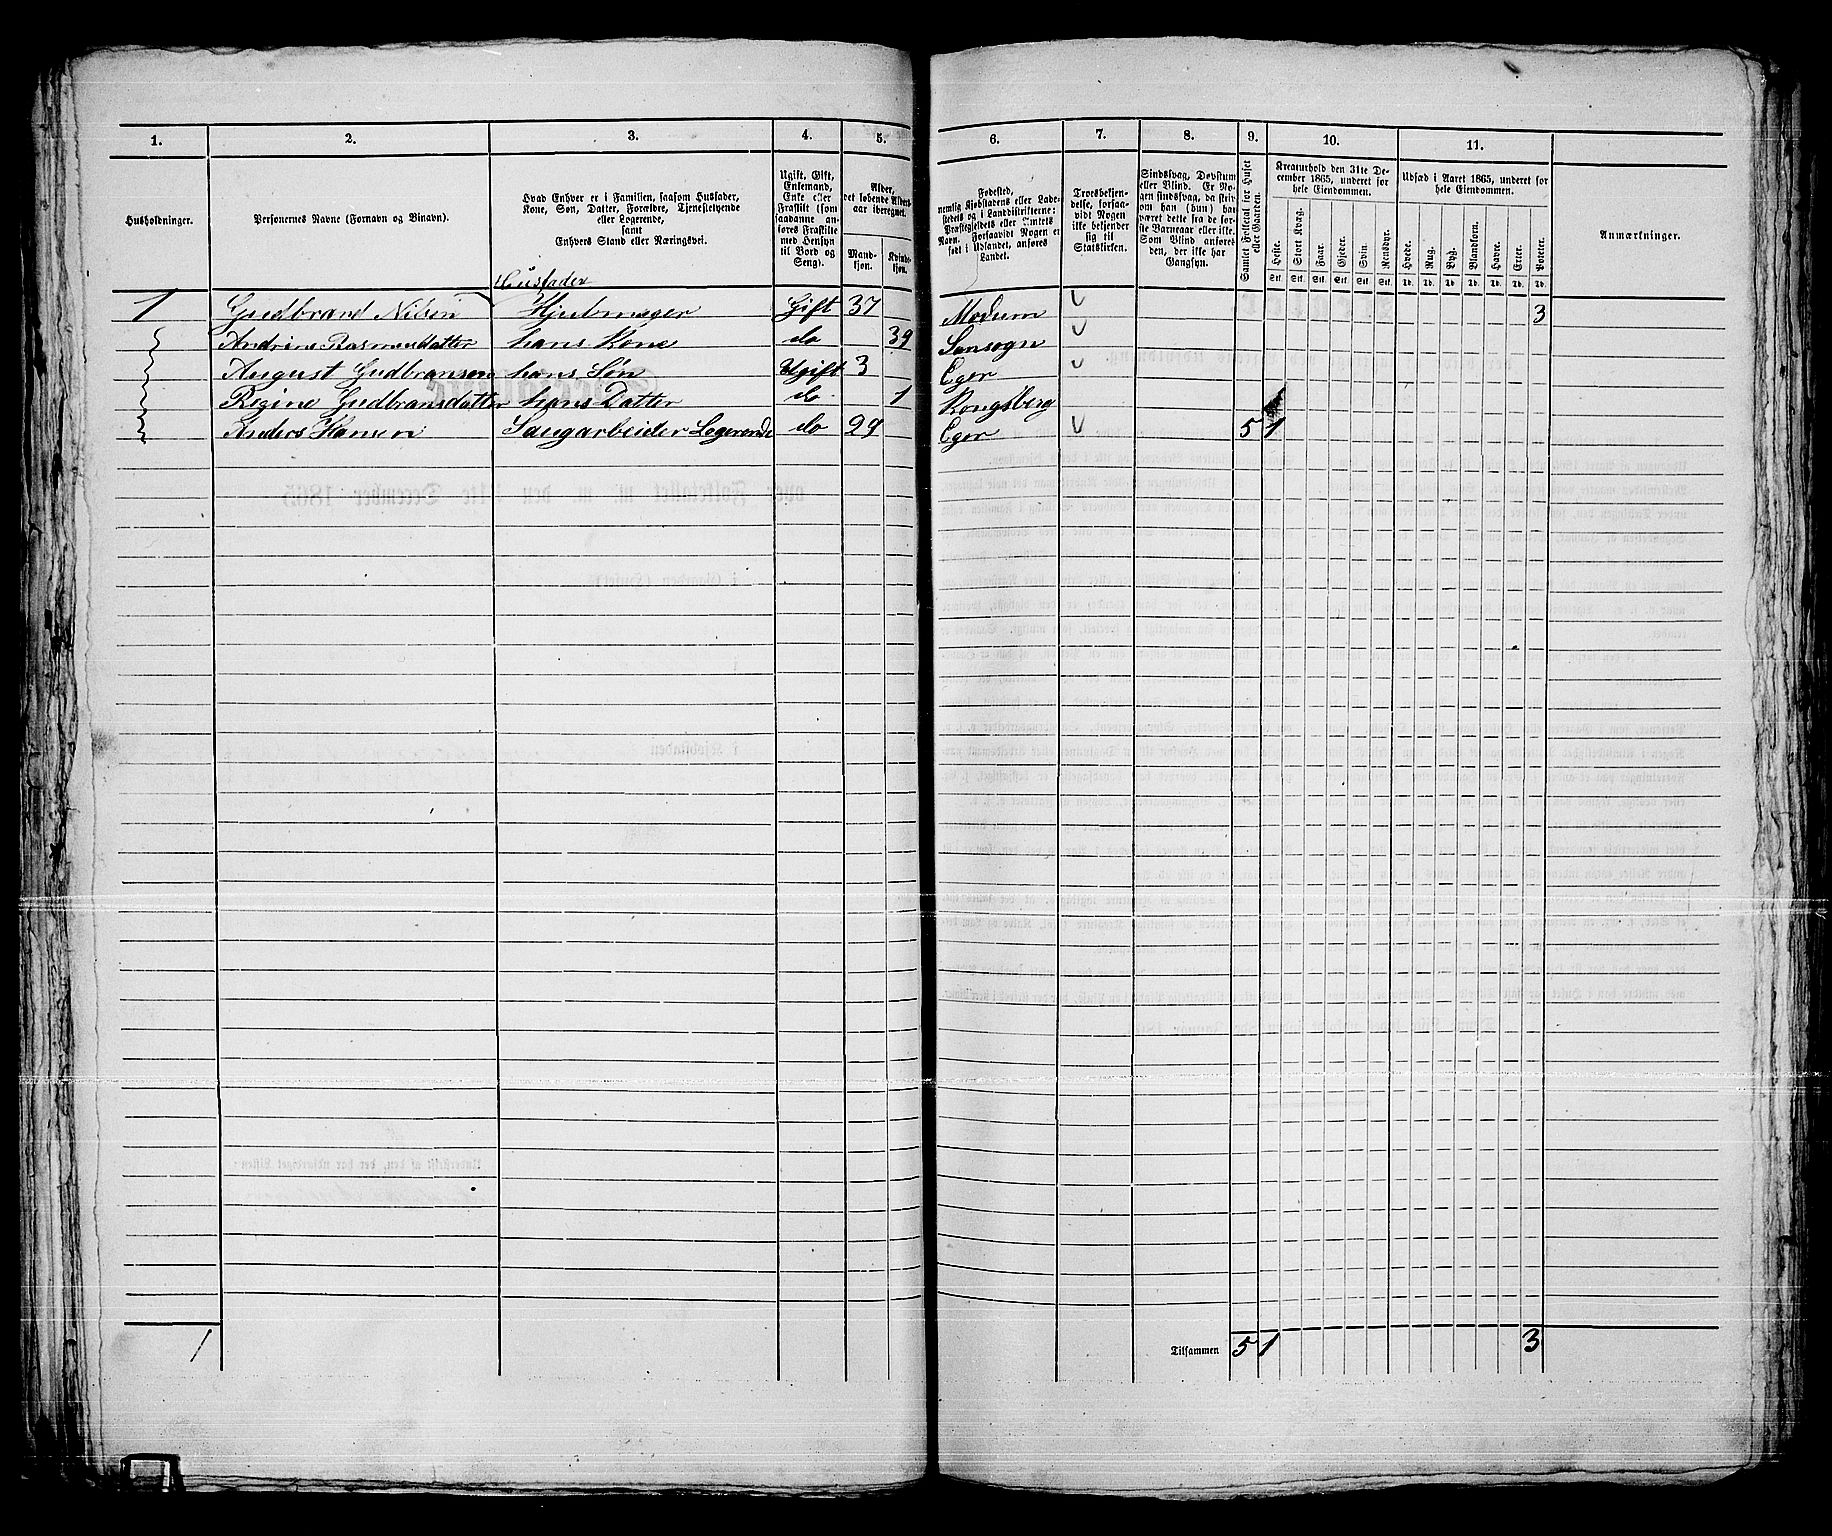 1. 2. 3. 4. 5. 6. 7. 8. 9. 10. 11.
Husholdninger.
Personernes Navne (Fornavn og Binavn).
Hvad Enhver er i Familien, saasom Husfader,
Kone, Søn, Datter, Forældre, Tjenestetyende
eller Logerende,
samt
Enhvers Stand eller Næringsvei.
Ugift, Gift,
Enkemand,
Enke eller
Fraskilt (som
saadanne an-
føres Fraskilte
med Hensyn
til Bord og
Seng).
Alder,
det løbende Alders-
aar iberegnet.
Mand-
kjøn.
Kvinde-
kjøn.
Fødested,
nemlig Kjøbstadens eller Lade-
stedets og i Landdistrikterne:
Præstegjeldets eller Amtets
Navn. Forsaavidt Nogen er
født i Udlandet, anføres
Landet.
Troesbekjen-
delse, forsaa-
vidt Nogen
ikke bekjender
sig til
Statskirken.
Sindssvag, Døvstum
eller Blind. Er No-
gen sindssvag, da skriv
om han (hun) har
været dette fra de før-
ste Barneaar eller ikke.
Som Blind anføres
den, der ikke har
Gangsyn.
Samlet Folketal for Huset
eller Gaarden.
Kreaturhold den 31te De-
cember 1865, underet for
hele Eiendommen.
Heste. Stort Kvæg. Faar. Gjeder. Svin. Rensdyr.
Stk. Stk. Stk. Stk. Stk. Stk.
Udsæd i Aaret 1865, underet for
hele Eiendommen.
Hvede. Rug. Byg. Blandkorn. Havre. Erter. Poteter.
Td. Td. Td. Td. Td. Td. Td.
Anmærkninger.
Husfader
1 Gudbrand Nilsen Hjulmager Gift 37 Modum 3
Andrine Rasmusdatter hans Kone do 39 Sansogn
August Gudbransen hans Søn Ugift 3 Eger
Regine Gudbransdatter hans Datter do 1 Kongsberg
Anders Hansen Saugarbeider Logerende do 29 Eger 5 1
1 Tilsammen 5 1 3